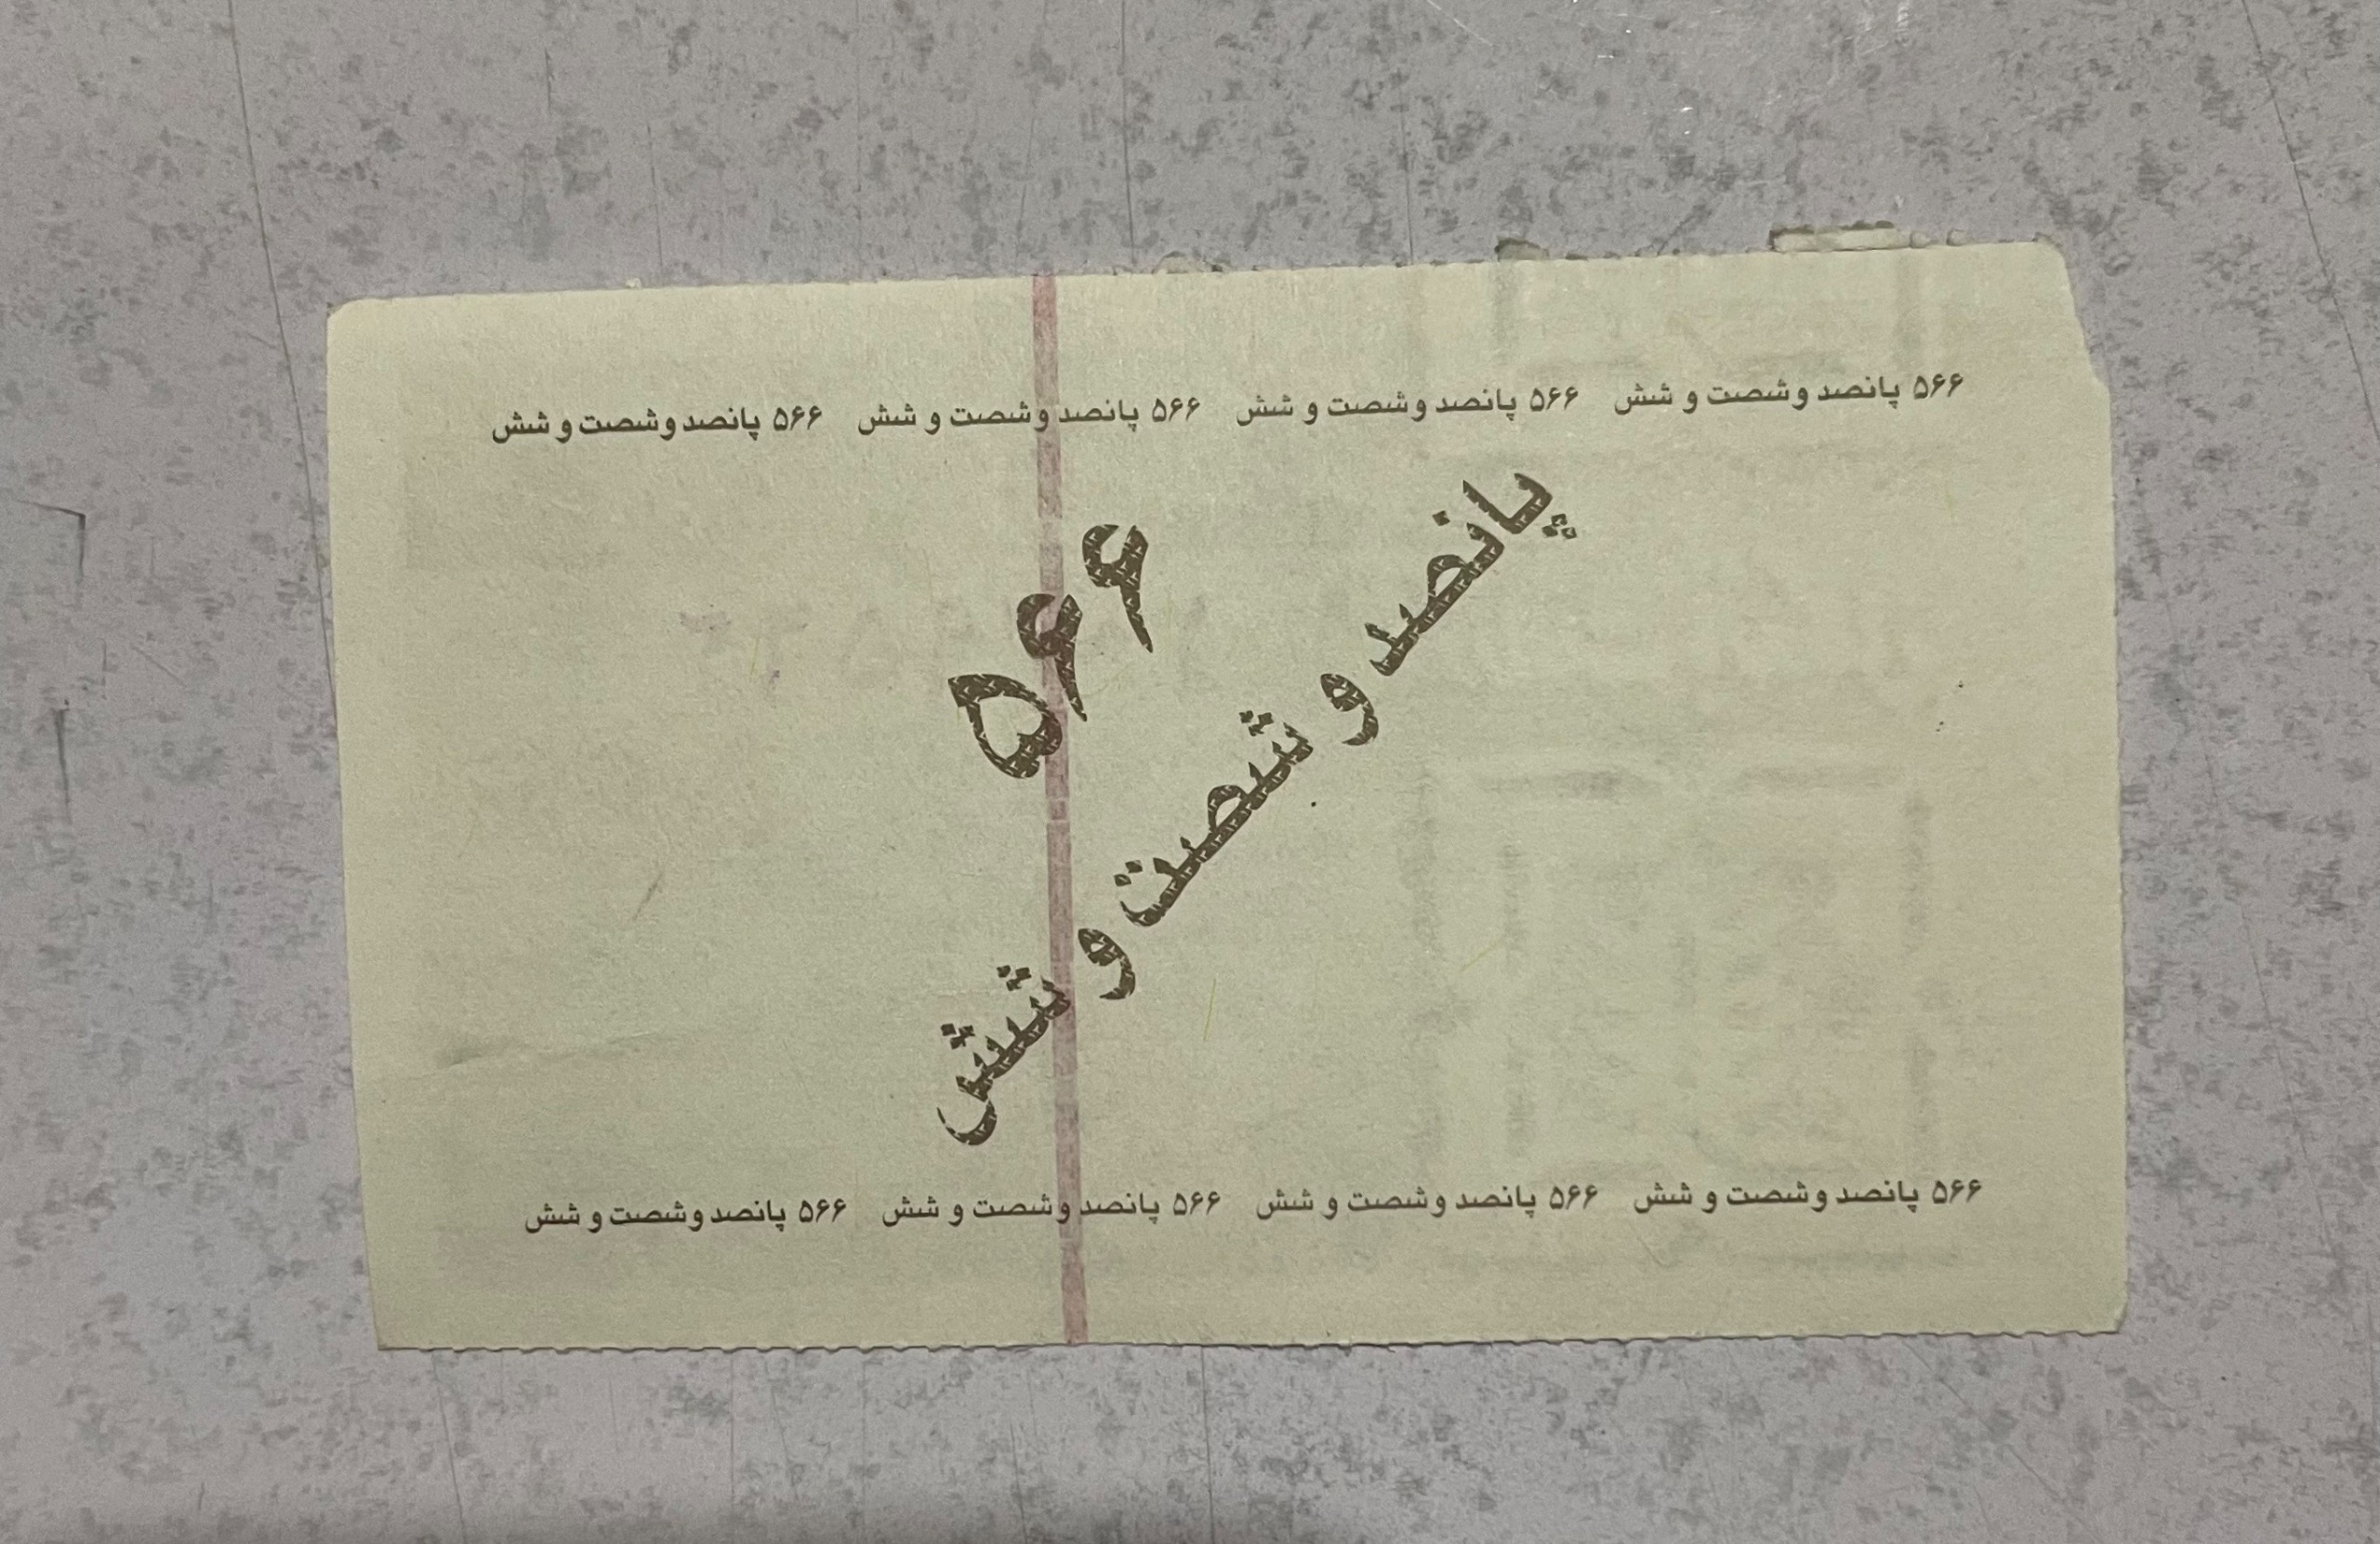 ۵۶۶ پانصد و شصت و شش ۵۶۶ پانصد و شصت و شش ۵۶۶ پانصد و شصت و شش ۵۶۶ پانصد و شصت و شش
۵۶۶
پانصد و شصت و شش
۵۶۶ پانصد و شصت و شش ۵۶۶ پانصد و شصت و شش ۵۶۶ پانصد و شصت و شش ۵۶۶ پانصد و شصت و شش